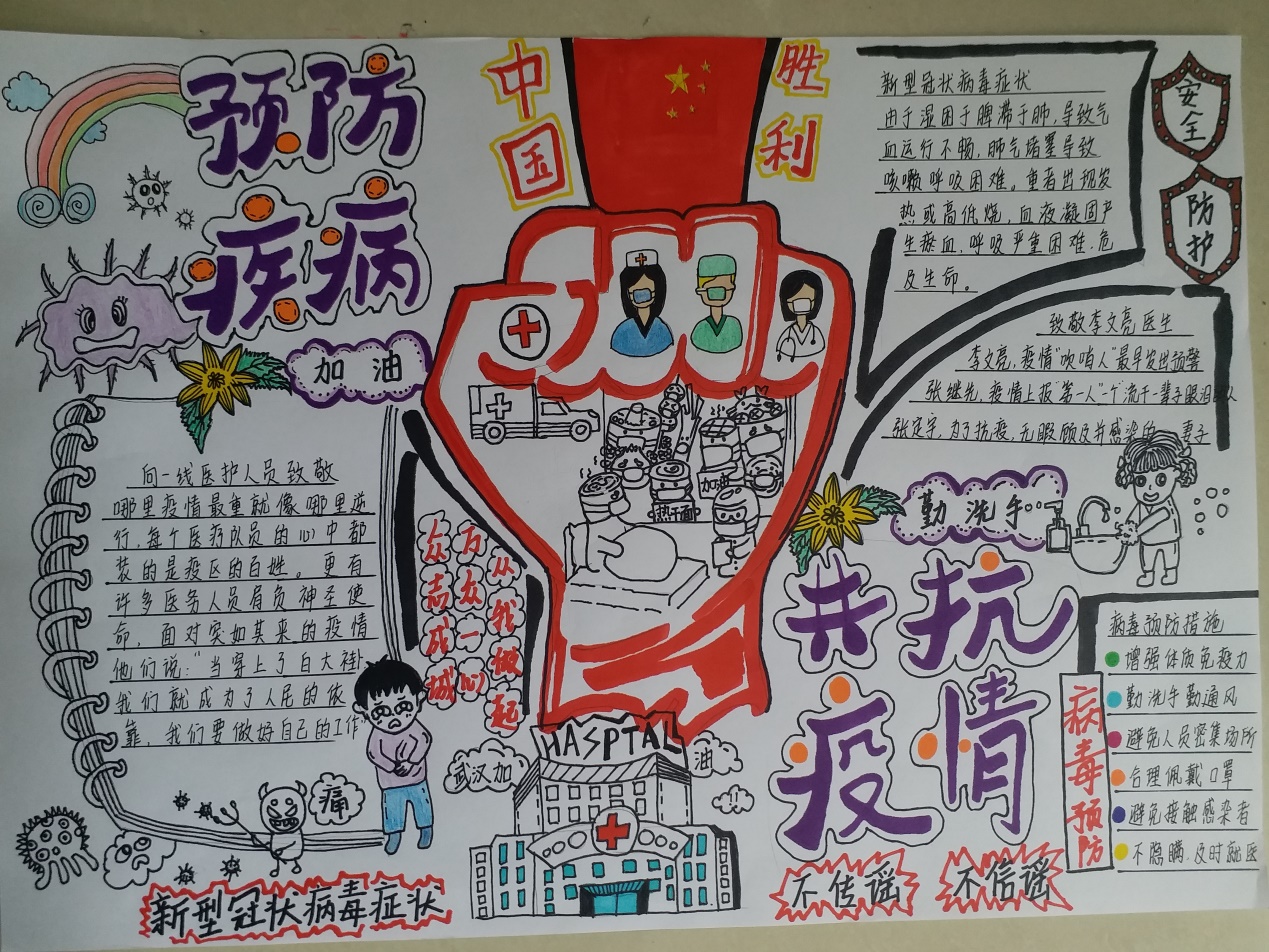 预防
疾病
加油
向一线医护人员致敬
哪里疫情最重就像哪里逆
行,每个医疗队员的心中都
装的是疫区的百姓。更有
许多医务人员肩负神圣使
命,面对突如其来的疫情
他们说:"当穿上了白大褂
我们就成为了人民的依
靠,我们要做好自己的工作"
痛
新型冠状病毒症状
中国
胜利
加油
热干面
众志成城
万众一心
从我做起
HASPTAL
武汉加
油
新型冠状病毒症状
由于湿困于脾滞于肺,导致气
血运行不畅,肺气堵塞导致
咳嗽呼吸困难。重者出现发
热或高低烧,血液凝固产
生瘀血,呼吸严重困难,危
及生命。
安全
防护
致敬李文亮医生
李文亮,疫情"吹哨人"最早发出预警
张继先,疫情上报"第一人"一个流干一辈子眼泪
张定宇,为了抗疫,无暇顾及并感染的
妻子
勤洗手
共抗
疫情
病毒预防
病毒预防措施
增强体质免疫力
勤洗手勤通风
避免人员密集场所
合理佩戴口罩
避免接触感染者
不隐瞒,及时就医
不传谣
不信谣